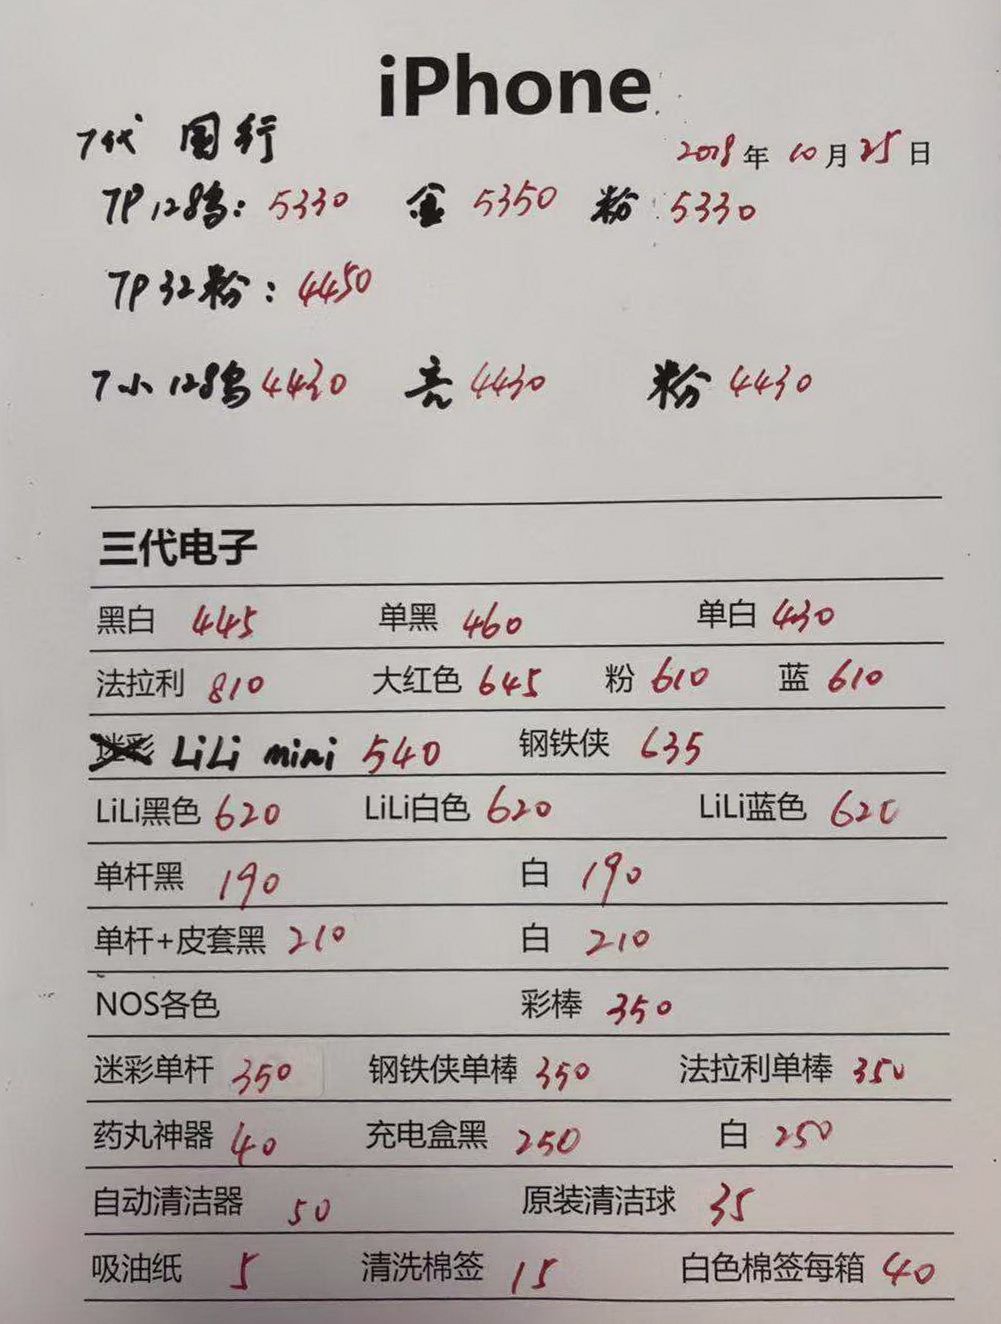 iPhone
7代 国行
2018年10月25日
7P128鸟: 5330 金 5350 粉: 5330
7P32粉: 4450
7小128鸟 4430 亮 4430 粉 4430
三代电子
黑白 445 单黑 460 单白 430
法拉利 810 大红色 645 粉 610 蓝 610
迷彩 LiLi mini 540 钢铁侠 635
LiLi黑色 620 LiLi白色 620 LiLi蓝色 620
单杆黑 190 白 190
单杆+皮套黑 210 白 210
NOS各色 彩棒 350
迷彩单杆 350 钢铁侠单棒 350 法拉利单棒 350
药丸神器 40 充电盒黑 250 白 250
自动清洁器 50 原装清洁球 35
吸油纸 5 清洗棉签 15 白色棉签每箱 40